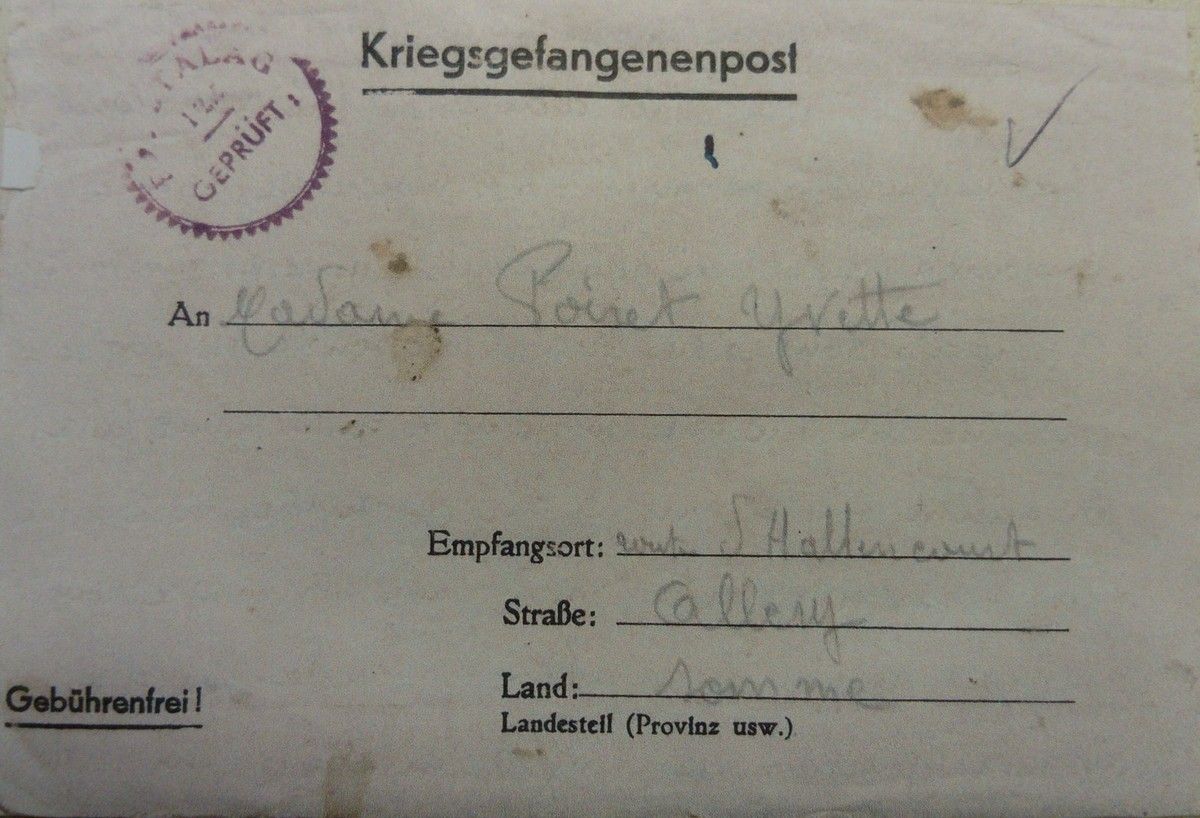 Kriegsgefangenenpost
STALAG
GEPRÜFT
An Madame Poiret Yvette
Empfangsort: route d Hallencourt
Straße: Allery
Land: Somme
Gebührenfrei!
Landesteil (Provinz usw.)